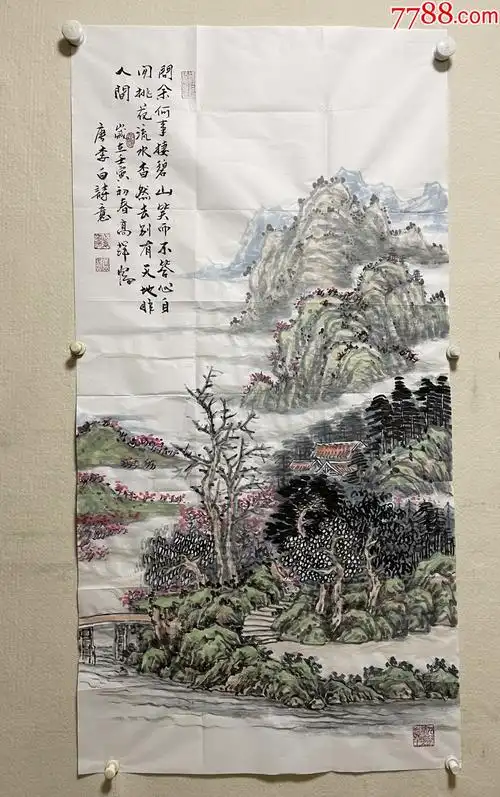 7788.com
問余何事棲碧山笑而不答心自
閑桃花流水杳然去別有天地非
人間 歲在壬寅初春高
唐李白詩意